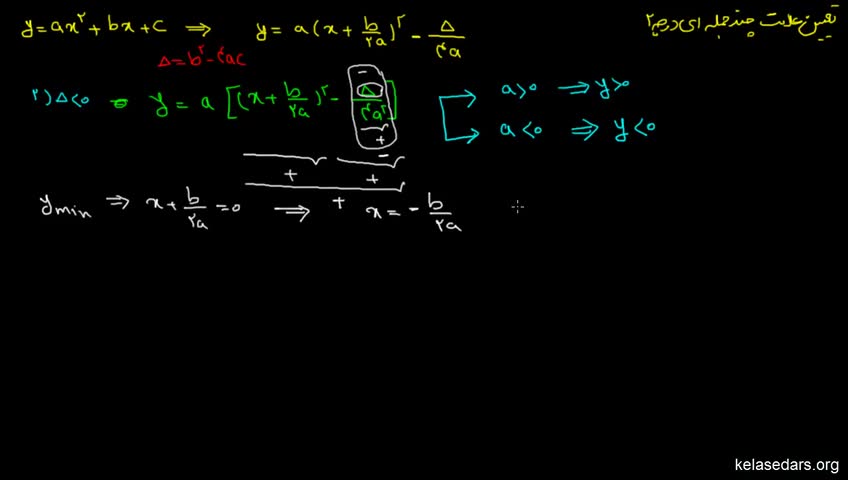 تعیین علامت چند جمله ای درجه ۲
y = ax² + bx + c ⇒ y = a(x + b/۲a)² - Δ/۴a
Δ = b² - ۴ac
۲) Δ<0 ⇒ y = a[(x + b/۲a)² - Δ/۴a²]
a>0 ⇒ y>0
a<0 ⇒ y<0
- +
+ - +
+
y min ⇒ x + b/۲a = 0 ⇒ x = - b/۲a
kelasedars.org